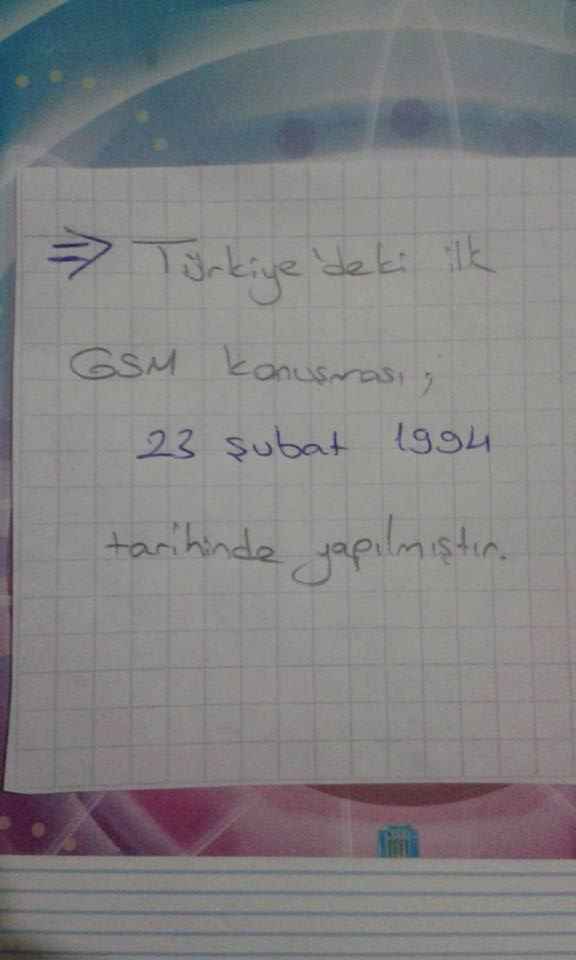 ⇒ Türkiye'deki ilk
GSM konuşması;
23 şubat 1994
tarihinde yapılmıştır.